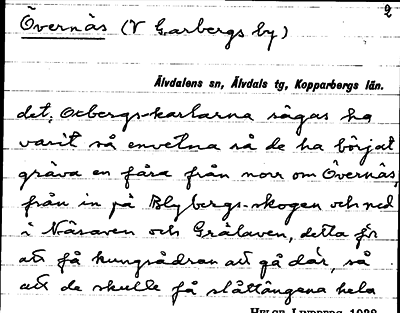 2
Övernäs (V Garbergs by)
Älvdalens sn, Älvdals tg, Kopparbergs län.
det, Oxbergs-karlarna sägas ha
varit så envetna så de ha börjat
gräva en fåra från norr om Övernäs,
från in på Blybergs-skogen och ned
i Näsaven och Grålaven, detta för
att få kungsådran att gå där, så
att de skulle få slåttängena hela